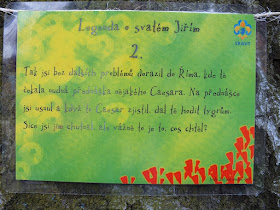 Legenda o svatém Jiřím
2.
Tak jsi bez dalších problémů dorazil do Říma, kde tě
čekala nudná přednáška nějakého Caesara. Na přednášce
jsi usnul a když to Caesar zjistil, dal tě hodit tygrům.
Sice jsi jim chutnal, ale vážně to je to, cos chtěl?